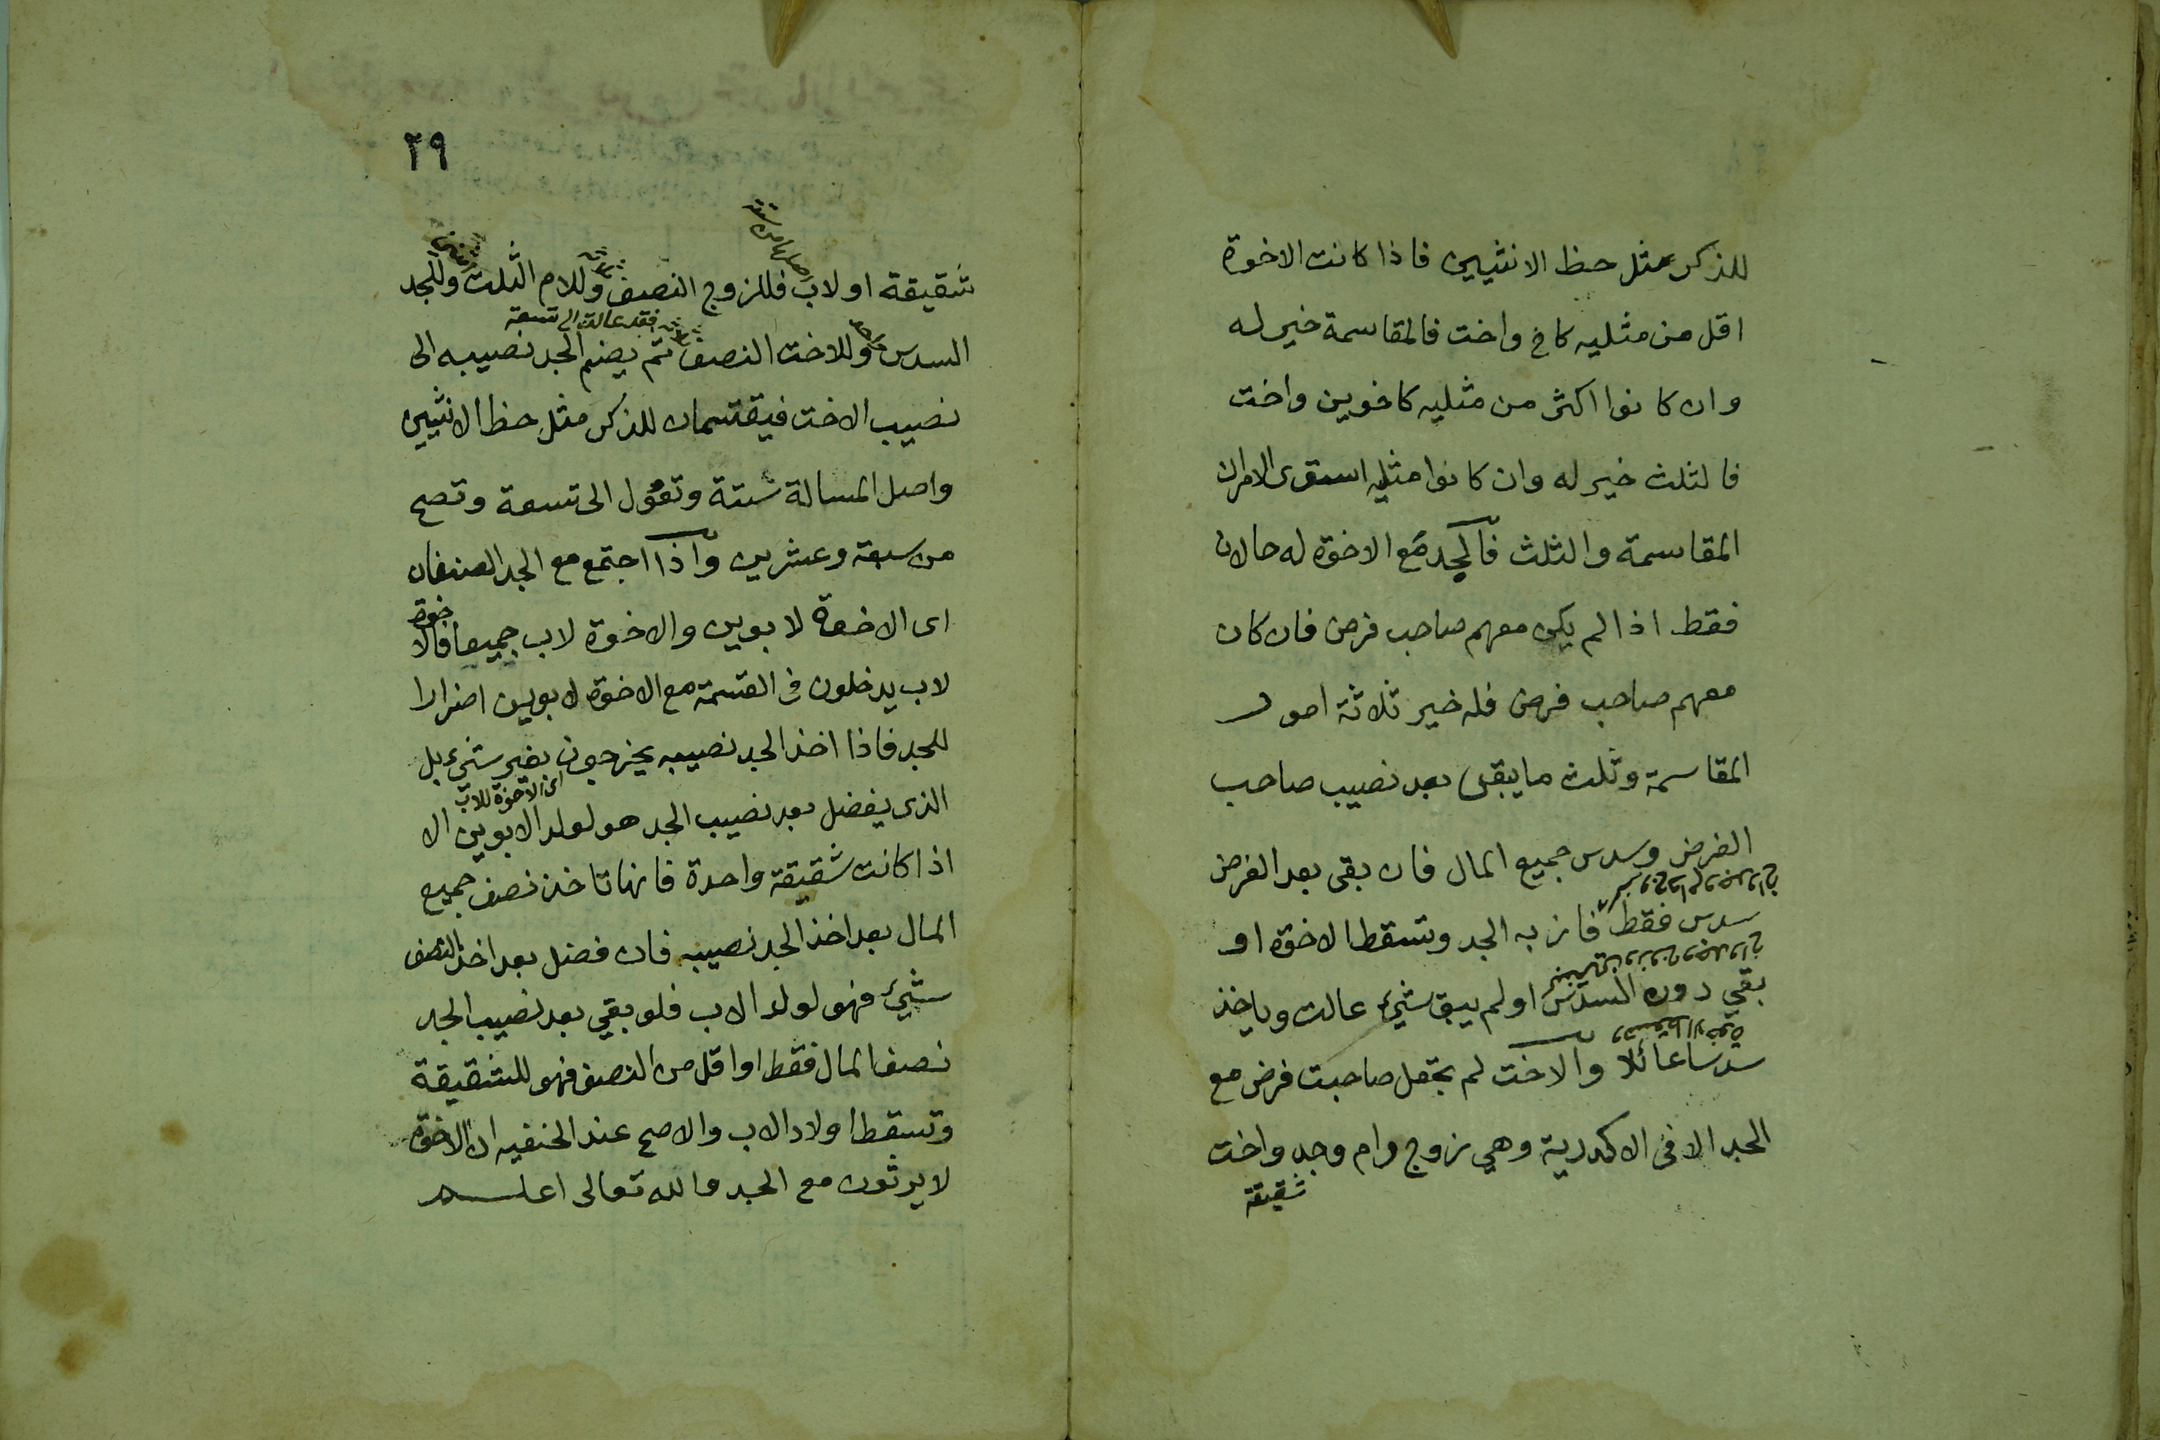 للذكر مثل حظ الانثيين فاذا كانت الاخوة
اقل من مثليه كاخ واخت فالمقاسمة خير له
وان كانوا اكثر من مثليه كاخوين واخت
فالثلث خير له وان كانوا مثليه استوى الامران
المقاسمة والثلث فالجد مع الاخوة له حالان
فقط اذا لم يكن معهم صاحب فرض فان كان
معهم صاحب فرض فله خير ثلاثة امور
المقاسمة وثلث ما يبقى بعد نصيب صاحب
الفرض وسدس جميع المال فان بقى بعد الفرض
سدس فقط فاز به الجد وتسقط الاخوة او
بقي دون السدس او لم يبق شيء عالت وياخذ
وتسقط الاخوة
سدسا عائلا والاخت لم تجعل صاحبت فرض مع
الجد الا فى الاكدرية وهي زوج وام وجد واخت
شقيقة
٢٩
اصلها من ستة
شقيقة او لاب فللزوج النصف وللام الثلث وللجد
فقد عالت الى تسعة
السدس وللاخت النصف ثم يضم الجد نصيبه الى
نصيب الاخت فيقتسمان للذكر مثل حظ الانثيين
واصل المسالة ستة وتعول الى تسعة وتصح
من سبعة وعشرين واذا اجتمع مع الجد الصنفان
اى الاخوة لابوين والاخوة لاب جميعا فالاخوة
لاب يدخلون فى القسمة مع الاخوة لابوين اضرارا
للجد فاذا اخذ الجد نصيبه يخرجون بغير شيء بل
اى الاخوة للاب
الذى يفضل بعد نصيب الجد هو لولد الابوين الا
اذا كانت شقيقة واحدة فانها تاخذ نصف جميع
المال بعد اخذ الجد نصيبه فان فضل بعد اخذ النصف
شيء فهو لولد الاب فلو بقي بعد نصيب الجد
نصف المال فقط او اقل من النصف فهو للشقيقة
وتسقط اولاد الاب والاصح عند الحنفيه ان الاخوة
لا يرثون مع الجد والله تعالى اعلم